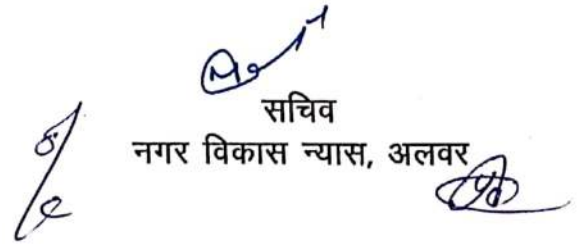 सचिव
नगर विकास न्यास, अलवर